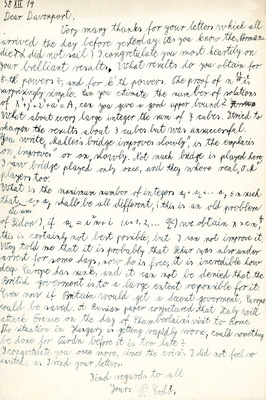 Dear Davenport,
Very many thanks for your letters which all
arrived the day before yesterday. As you know the
did not sail) I congratulate you most heartily on
your brilliant results. What results do you obtain for
powers, and for k'th powers. The proof of is
surprisingly simple. Can you estimate the number of solutions
of = A, can you give a good upper bound?
What about every large integer the sum of 7 cubes. I tried to
sharpen the results about 3 cubes but was unsuccessful.
You write, Mahler's bridge improves slowly", is the emphasis
on, improves or on, slowly. Not much bridge is played here,
I saw bridge played only once, and they where real, O.K
players too.
What is the maximum number of integers such
that shall be all different, (this is an old problem
of Sidon), if we obtain
this is certainly not best possible, but I can not improve it.
told me that it is probably that was under
arrest for some days, now he is free, it is incredible how
deep Europe has sunk, and it can not be denied that the
British government is to a large extent reponsible for it.
Even now if Britain would get a decent goverment, Europe
could be saved. A Russian paper conjectured that Italy will
attack Greece on the day of Chamberlain's visit to Rome.
The situation in Hungary is getting rapidly worse, could something
be done for before it is too late?
I congratulate you once more, since the crisis I did not feel so
excited, as I read your letters.
Kind regards to all
Yours P. Erdős.